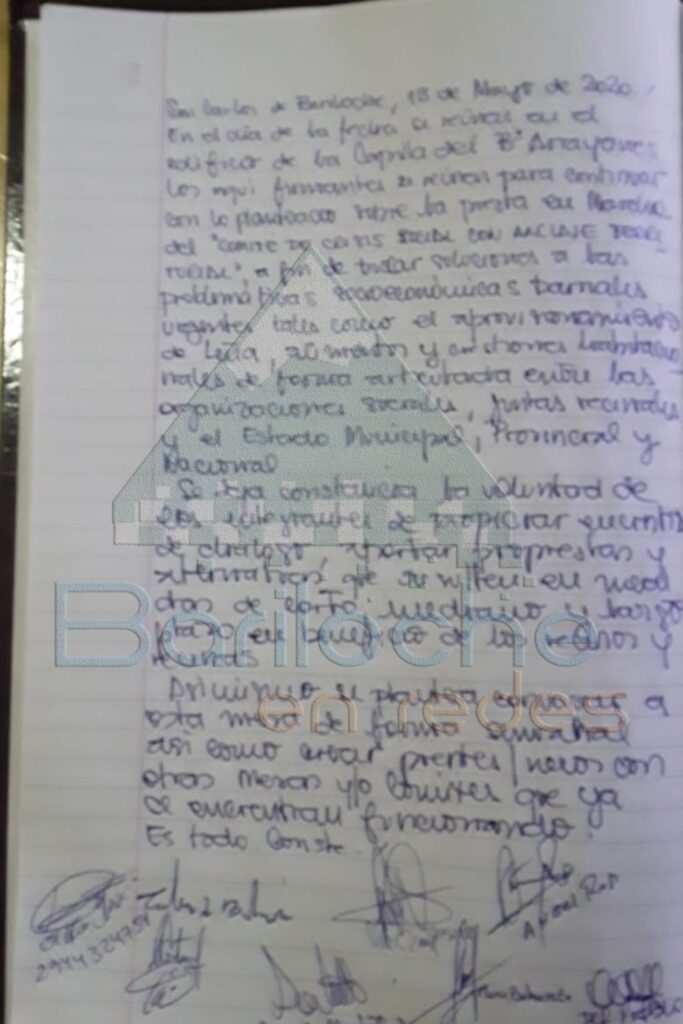 San Carlos de Bariloche, 18 de Mayo de 2020.
En el día de la fecha se reúnen en el
edificio de la Capilla del B° Arrayanes
los aquí firmantes se reúnen para continuar
con lo planteado sobre la puesta en Marcha
del "COMITE DE CRISIS SOCIAL CON ANCLAJE
a fin de buscar soluciones a las
problemáticas socioeconómicas barriales
urgentes tales como el aprovisionamiento
de leña, alimentos y cuestiones habitacio
nales de forma articulada entre las
organizaciones sociales, juntas vecinales
y el Estado Municipal, Provincial y
Nacional
Se deja constancia la voluntad de
los integrantes de propiciar
de diálogo, aportar propuestas y
alternativas que se en medi
das de corto, mediano y largo
plazo en beneficio de los vecinos y
vecinas
Bariloche
en redes
Asimismo se plantea convocar a
esta mesa de forma semanal
así como crear puentes/nexos con
otras mesas y/o comités que ya
se encuentran funcionando.
Es todo Conste.
2944324754